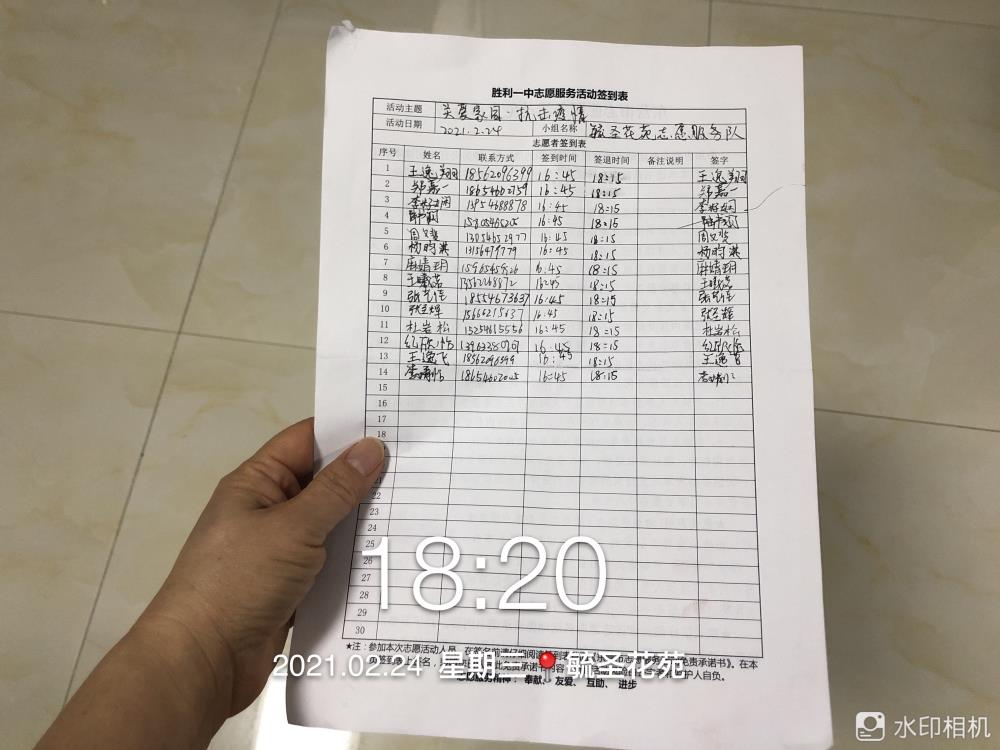 胜利一中志愿服务活动签到表
活动主题 关爱家园·抗击疫情
活动日期 2021.2.24 小组名称 毓圣花苑志愿服务队
志愿者签到表
序号 姓名 联系方式 签到时间 签退时间 备注说明 签字
1 王逸翔 18562096399 16:45 18:15 王逸翔
2 郑嘉一 18654602759 16:45 18:15 郑嘉一
3 13954688878 16:45 18:15
4 15805465205 16:45 18:15
5 周文赟 13054652977 16:45 18:15 周文赟
6 杨昀淇 13156479779 16:45 18:15 杨昀淇
7 麻婧玥 16:45 18:15 麻婧玥
8 王曦蕊 13562268872 16:45 18:15 王曦蕊
9 18554673637 16:45 18:15
10 15666215637 16:45 18:15
11 杜岩松 15254615556 16:45 18:15 杜岩松
12 纪欣怡 16:45 18:15 纪欣怡
13 王逸飞 18562096399 16:45 18:15 王逸飞
14 18654602005 16:45 18:15
15
16
17
18
22
23
24
25
26
27
28
29
30
18:20
★注：参加本次志愿活动人员，在签名前请仔细阅读
免责承诺书》。在本
页签到表上签名，
护人自负。
奉献、友爱、互助、进步
2021.02.24 星期三 毓圣花苑
水印相机